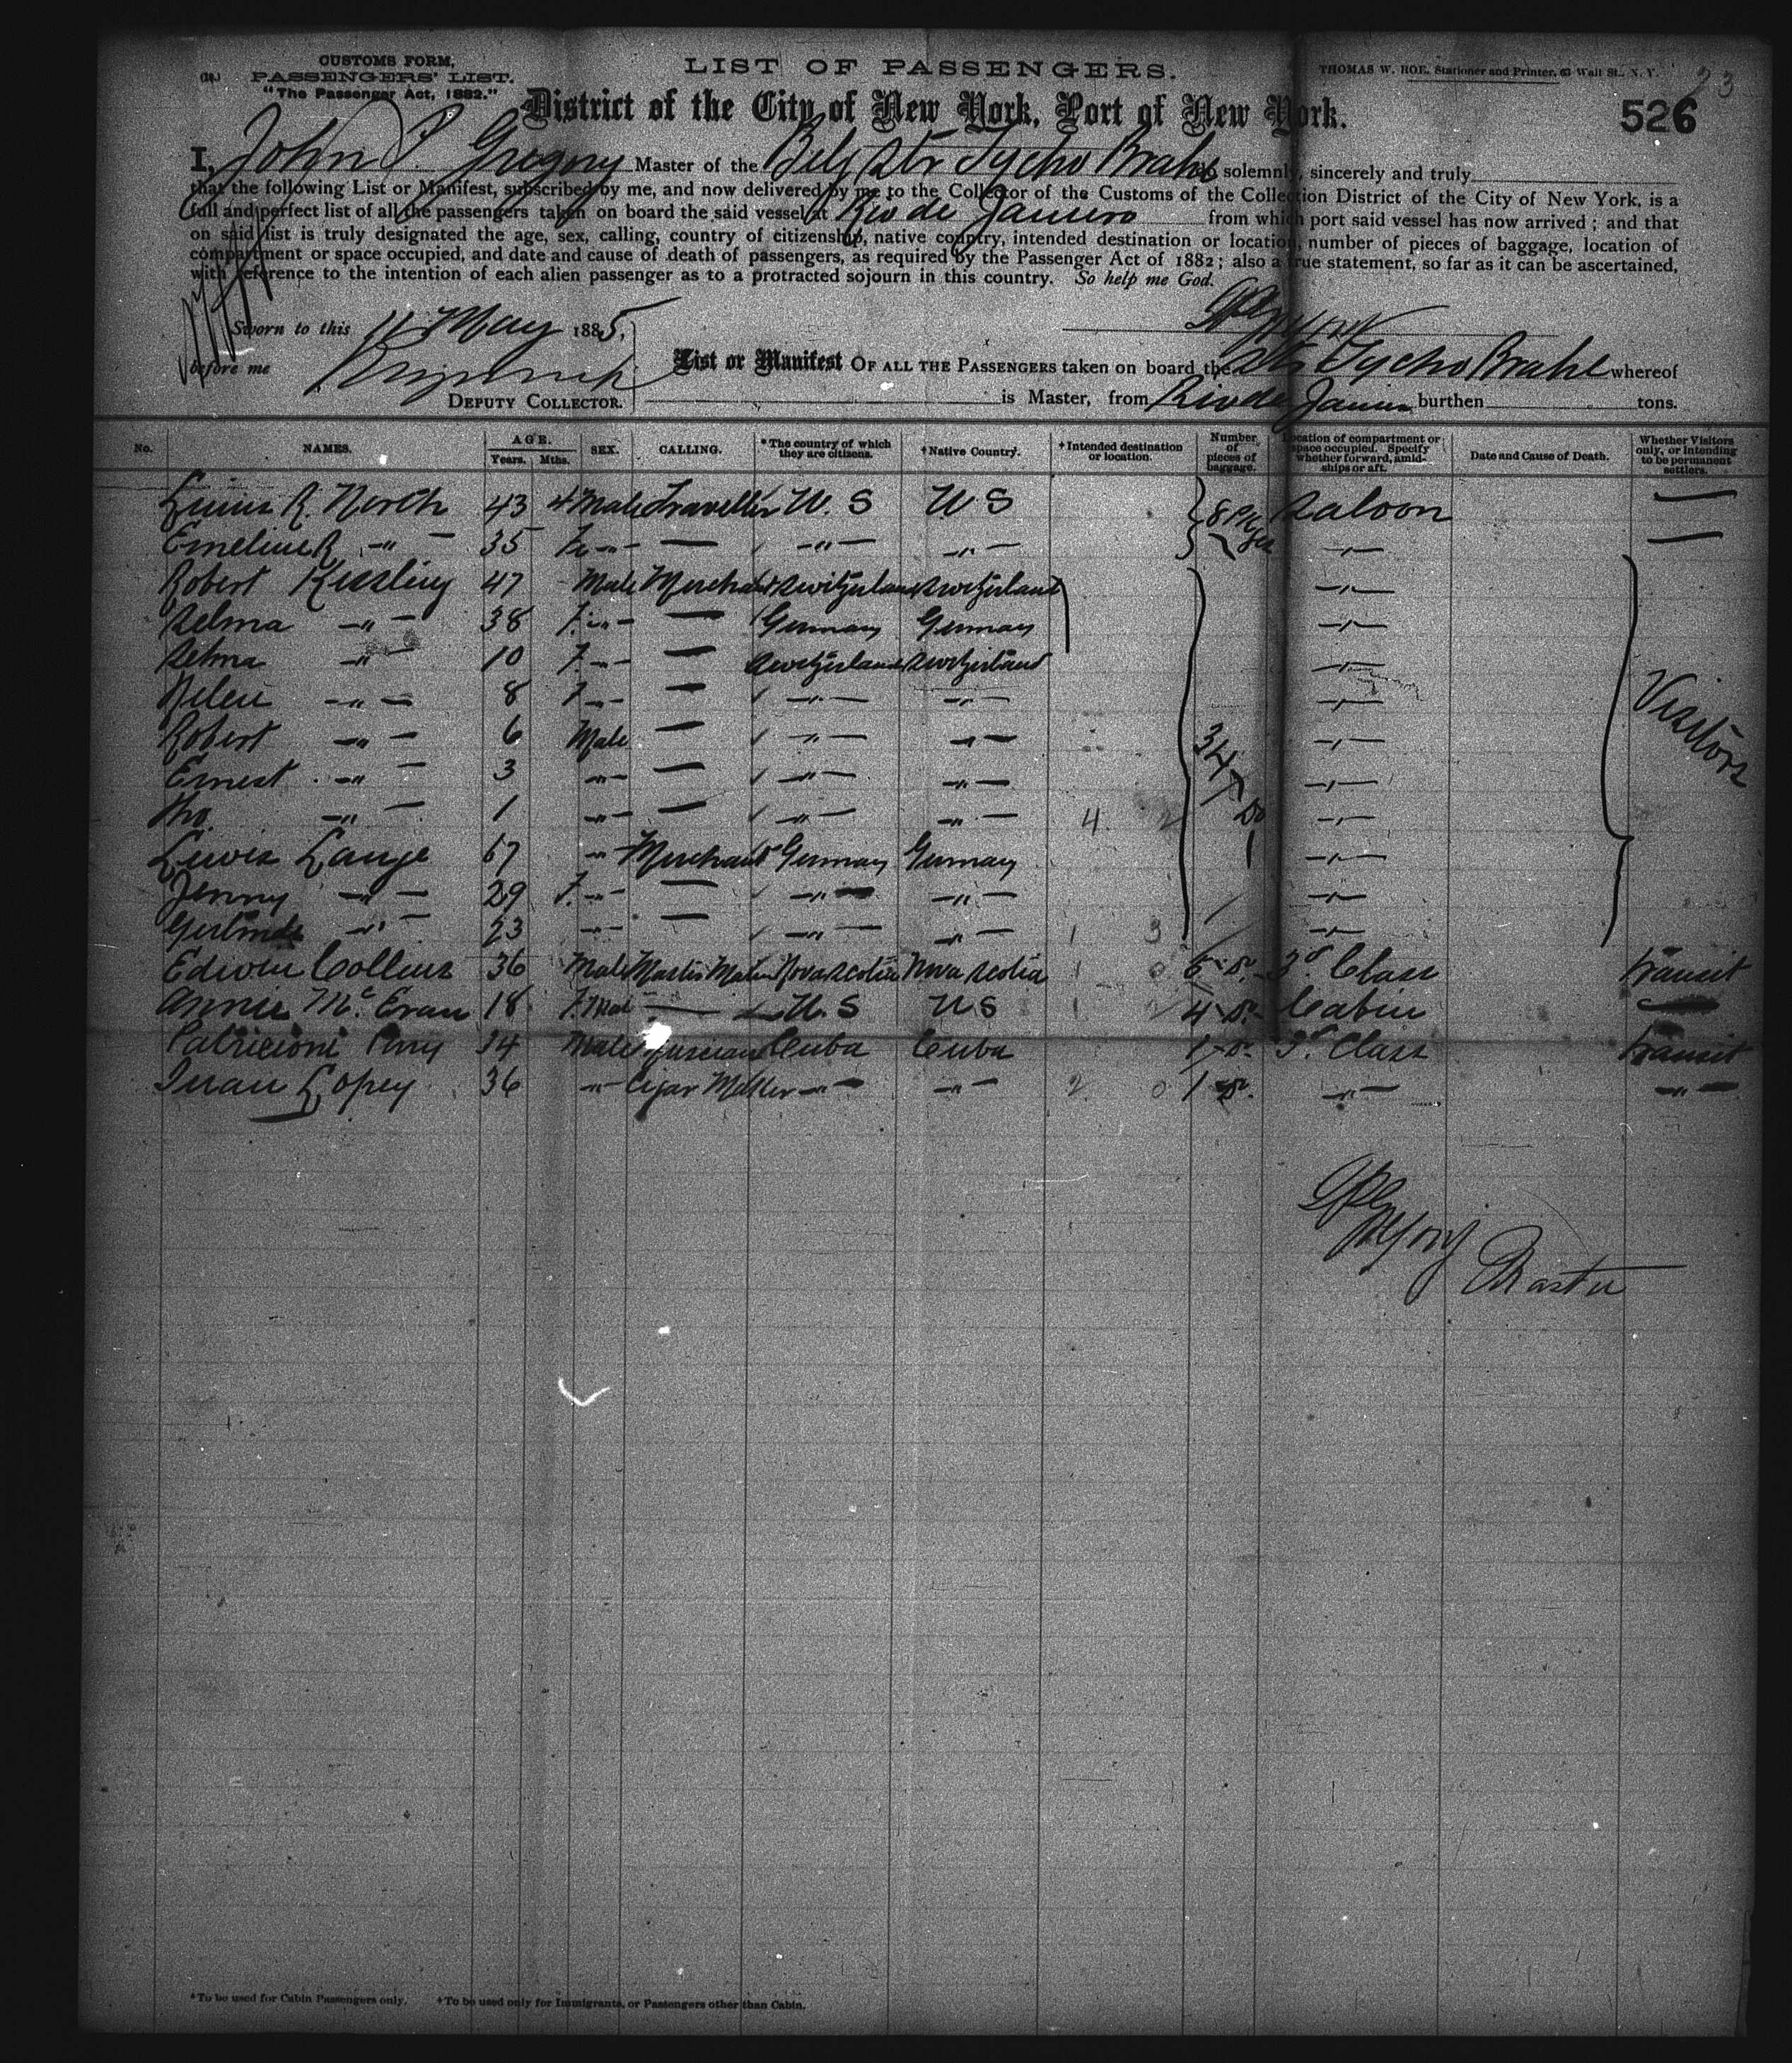 CUSTOMS FORM,
(14.) PASSENGERS' LIST.
"The Passenger Act, 1882."
LIST OF PASSENGERS.
THOMAS W. ROE, Stationer and Printer, 63 Wall St., N. Y.
23
District of the City of New York, Port of New York.
526
I, John P. Gregory Master of the Belg Str Tycho Brahe do solemnly, sincerely and truly
that the following List or Manifest, subscribed by me, and now delivered by me to the Collector of the Customs of the Collection District of the City of New York, is a
full and perfect list of all the passengers taken on board the said vessel at Rio de Janeiro from which port said vessel has now arrived; and that
on said list is truly designated the age, sex, calling, country of citizenship, native country, intended destination or location, number of pieces of baggage, location of
compartment or space occupied, and date and cause of death of passengers, as required by the Passenger Act of 1882; also a true statement, so far as it can be ascertained,
with reference to the intention of each alien passenger as to a protracted sojourn in this country. So help me God.
Sworn to this 11 May 1885,
before me
DEPUTY COLLECTOR.
List or Manifest OF ALL THE PASSENGERS taken on board the Str Tycho Brahe whereof
is Master, from Rio de Janeiro burthen tons.
No. NAMES. AGE. Years. Mths. SEX. CALLING. *The country of which they are citizens. †Native Country. †Intended destination or location. Number of pieces of baggage. Location of compartment or space occupied. Specify whether forward, amidships or aft. Date and Cause of Death. Whether Visitors only, or intending to be permanent settlers.
R. North 43 4 Male Traveller U. S U S 8 Saloon —
Emeline R " 35 F " — " " " —
Robert Kissling 47 Male Merchant Switzerland Switzerland "
Selma " 38 F. " — Germany Germany "
Selma " 10 F. " — Switzerland Switzerland "
Helen " 8 F " — " " "
Robert " 6 Male — " " " 34 Do Visitors
Ernest " 3 " — " " "
" 1 " — " " 4 2 "
Lewis Lange 67 " Merchant Germany Germany "
Jenny " 29 F. " — " " "
" 23 " — " " 1 3 "
Edwin Collins 36 Male Master Nova Scotia Nova Scotia 1 0 5 Do 3d. Class Transit
Annie Mc. Evan 18 F. — U. S U S 1 2 4 Do Cabin —
34 Male Cuba Cuba 1 Do 3d. Class Transit
Juan Lopez 36 " Cigar Maker " " 2 0 1 Do " "
Master
*To be used for Cabin Passengers only. †To be used only for Immigrants, or Passengers other than Cabin.